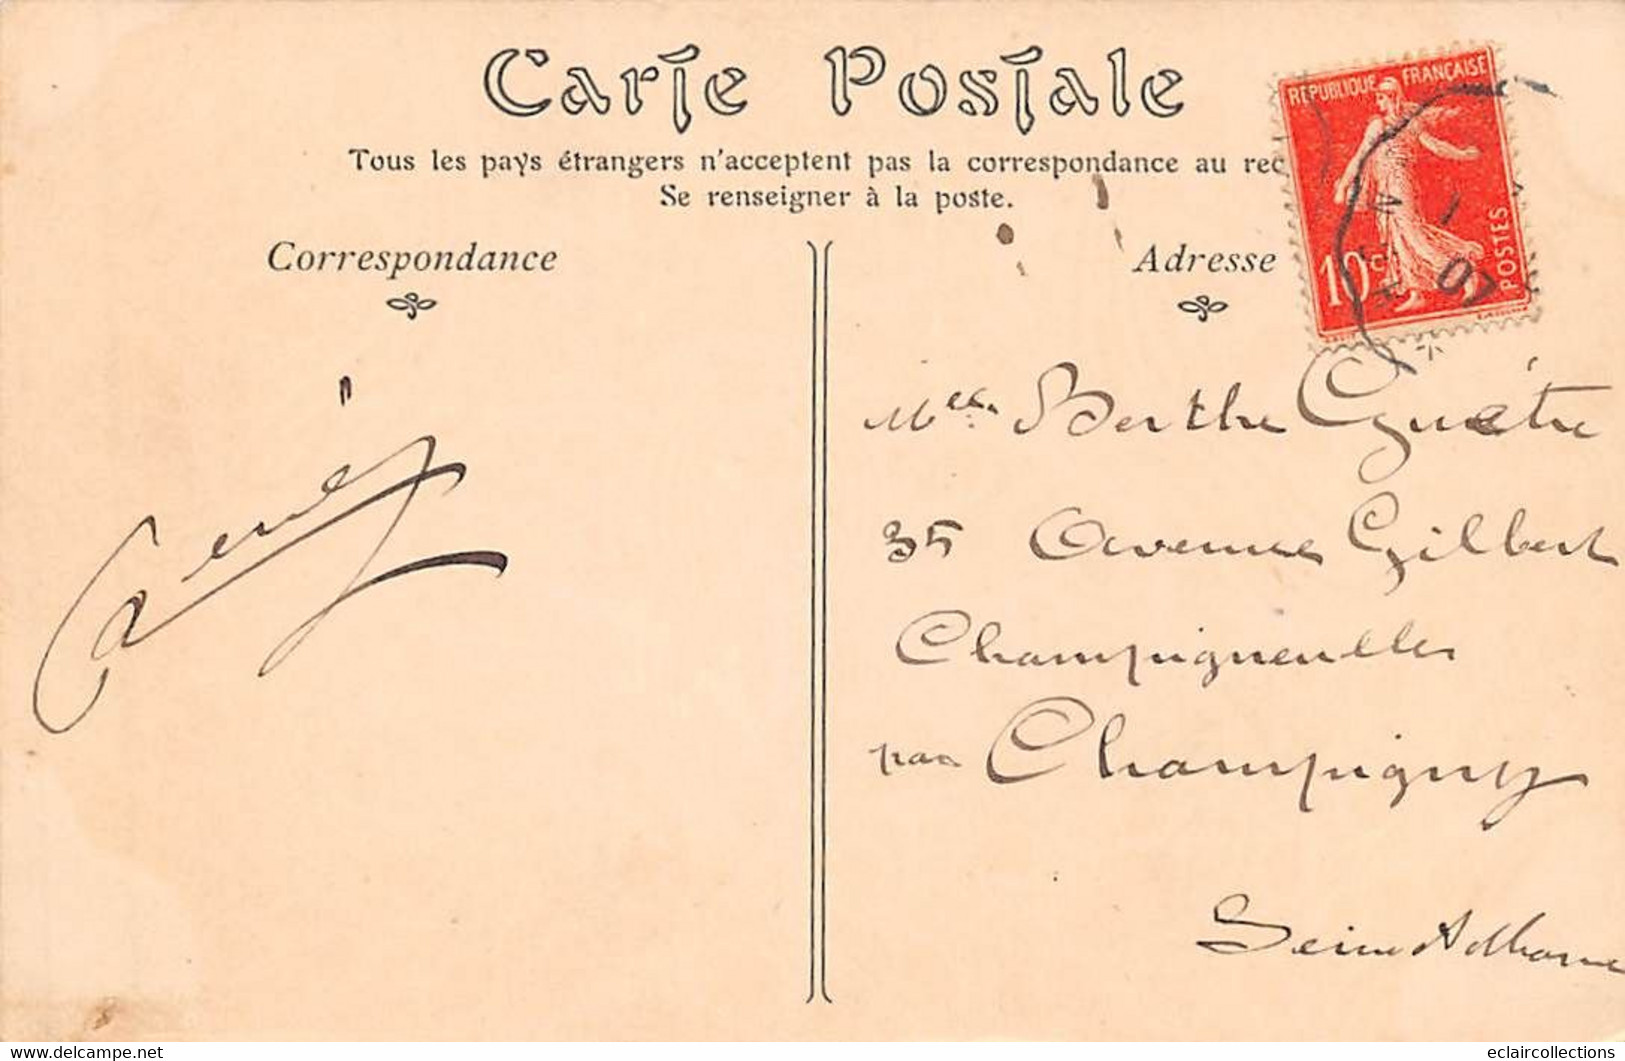 Carte Postale
Tous les pays étrangers n'acceptent pas la correspondance au rec
Se renseigner à la poste.
Correspondance
Adresse
REPUBLIQUE FRANÇAISE
10c
POSTES
07
Melle Berthe
35 Avenue Gilbert
Champigneulles
par Champigny
Seine & Marne
www.delcampe.net
eclaircollections